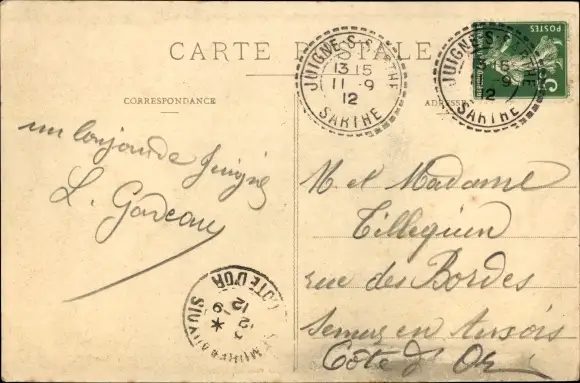 CARTE POSTALE
CORRESPONDANCE
ADRESSE
JUIGNÉ-S-SARTHE
13 15
11 - 9
12
SARTHE
JUIGNÉ-S-SARTHE
13 15
9
12
SARTHE
POSTES
5
un bonjour de Juigné
L. Gardeau
M. et Madame
Tillequien
rue des Bordes
Semur en Auxois
Côte d'Or
CÔTE D'OR
12
9